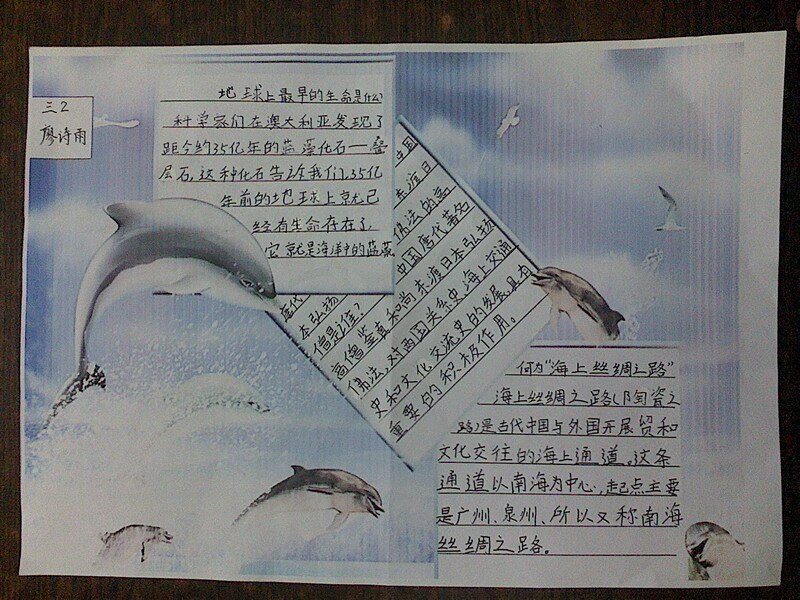 三2
廖诗雨
地球上最早的生命是什么?
科学家们在澳大利亚发现了
距今约35亿年的蓝藻化石——叠
层石,这种化石告诉我们,35亿
年前的地球上就已
经有生命存在了,
它就是海洋中的蓝藻
中国
唐代 东渡日
本弘扬佛法的高
僧是谁?中国唐代著名
高僧鉴真和尚东渡日本弘扬
佛法,对两国关系史,海上交通
史和文化交流史的发展,具有
重要的积极作用。
何为“海上丝绸之路”
海上丝绸之路(陶瓷之
路)是古代中国与外国开展贸和
文化交往的海上通道。这条
通道以南海为中心,起点主要
是广州、泉州、所以又称南海
丝绸之路。